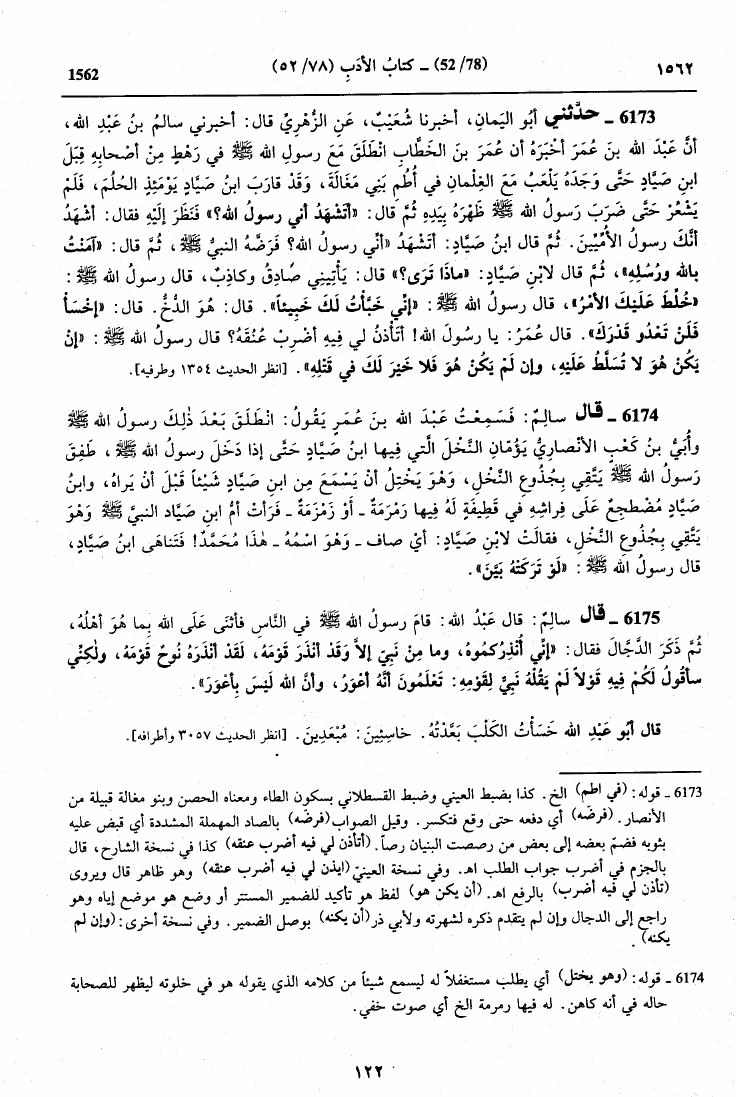 ١٥٦٢ (52/78) ـ كتابُ الأدَبِ (٥٢/٧٨) 1562
6173 ـ حدَّثني أبُو اليَمانِ، أخبرنا شُعَيْبٌ، عَنِ الزُّهْرِيِّ قال: أخبرني سالمُ بنُ عَبْدِ الله،
أنَّ عَبْدَ الله بنَ عُمَرَ أخْبَرَهُ أن عُمَرَ بنَ الخَطَّابِ انْطَلَقَ مَعَ رسولِ الله ﷺ في رَهْطٍ مِنْ أصْحابِهِ قِبَلَ
ابنِ صَيَّادٍ حَتَّى وجَدَهُ يَلْعَبُ مَعَ الغِلْمانِ في أُطُمِ بَنِي مَغَالَةَ، وَقَدْ قارَبَ ابنُ صَيَّادٍ يَوْمَئِذٍ الحُلُمَ، فَلَمْ
يَشْعُرْ حَتَّى ضَرَبَ رَسولُ الله ﷺ ظَهْرَهُ بِيَدِهِ ثُمَّ قال: «أتَشْهَدُ أني رسولُ الله؟» فَنَظَرَ إلَيْهِ فقال: أشْهَدُ
أنَّكَ رسولُ الأُمِّيِّينَ. ثُمَّ قال ابنُ صَيَّادٍ: أتَشْهَدُ «أنِّي رسولُ الله؟ فَرَضَّهُ النبيُّ ﷺ، ثُمَّ قال: «آمَنْتُ
بالله ورُسُلِهِ»، ثُمَّ قال لابْنِ صَيَّادٍ: «ماذَا تَرَى؟» قال: يَأْتِينِي صادِقٌ وكاذِبٌ، قال رسولُ الله ﷺ:
«خُلِّطَ عَلَيْكَ الأمْرُ»، قال رسولُ الله ﷺ: «إنِّي خَبَأْتُ لَكَ خَبِيئاً». قال: هُوَ الدُّخُّ. قال: «إخْسَأْ
فَلَنْ تَعْدُوَ قَدْرَكَ». قال عُمَرُ: يا رسُولَ الله! أتَأْذَنُ لي فِيهِ أضْرِبْ عُنُقَهُ؟ قال رسولُ الله ﷺ: «إنْ
يَكُنْ هُوَ لا تُسَلَّطُ عَلَيْهِ، وإن لَمْ يَكُنْ هُوَ فَلا خَيْرَ لَكَ في قَتْلِهِ». [انظر الحديث ١٣٥٤ وطرفيه].
6174 ـ قال سالِمٌ: فَسَمِعْتُ عَبْدَ الله بنَ عُمَرَ يَقُولُ: انْطَلَقَ بَعْدَ ذٰلِكَ رسولُ الله ﷺ
وأُبَيُّ بنُ كَعْبٍ الأنْصارِيُّ يَؤُمَّانِ النَّخْلَ الَّتي فِيها ابنُ صَيَّادٍ حَتَّى إذا دَخَلَ رسولُ الله ﷺ، طَفِقَ
رَسولُ الله ﷺ يَتَّقِي بِجُذُوعِ النَّخْلِ، وَهْوَ يَخْتِلُ أنْ يَسْمَعَ مِن ابنِ صَيَّادٍ شَيْئاً قَبْلَ أنْ يَراهُ، وابنُ
صَيَّادٍ مُضْطَجِعٌ عَلَى فِراشِهِ في قَطِيفَةٍ لَهُ فِيها رَمْرَمَةٌ ـ أوْ زَمْزَمَةٌ ـ فَرَأتْ أمُّ ابنِ صَيَّاد النبيَّ ﷺ وَهْوَ
يَتَّقِي بِجُذُوعِ النَّخْلِ، فقالَتْ لابْنِ صَيَّادٍ: أيْ صاف ـ وَهْوَ اسْمُهُ ـ هٰذَا مُحَمَّدٌ! فَتَناهَى ابنُ صَيَّادٍ،
قال رسولُ الله ﷺ: «لَوْ تَرَكَتْهُ بَيَّنَ».
6175 ـ قال سالِمٌ: قال عَبْدُ الله: قامَ رسولُ الله ﷺ في النَّاسِ فأثْنَى عَلَى الله بِما هُوَ أهْلُهُ،
ثُمَّ ذَكَرَ الدَّجَّالَ فقال: «إنِّي أُنْذِرُكُمُوهُ، وما مِنْ نَبِيّ إلاَّ وَقَدْ أنْذَرَ قَوْمَهُ، لَقَدْ أنْذَرَهُ نُوحٌ قَوْمَهُ، ولٰكِنِّي
سأقُولُ لَكُمْ فِيهِ قَوْلاً لَمْ يَقُلْهُ نَبِيٌّ لِقَوْمِهِ: تَعْلَمُونَ أنَّهُ أعْوَرُ، وأنَّ الله لَيْسَ بِأعْوَرَ».
قال أبُو عَبْدِ الله خَسَأْتُ الكَلْبَ بَعَّدْتُهُ. خاسِئِينَ: مُبْعَدِينَ. [انظر الحديث ٣٠٥٧ وأطرافه].
6173 ـ قوله: (في اطم) الخ. كذا بضبط العيني وضبط القسطلاني بسكون الطاء ومعناه الحصن وبنو مغالة قبيلة من
الأنصار. (فرضه) أي دفعه حتى وقع فتكسر. وقيل الصواب (فرصه) بالصاد المهملة المشددة أي قبض عليه
بثوبه فضمّ بعضه إلى بعض من رصصت البنيان رصاً. (أتأذن لي فيه أضرب عنقه) كذا في نسخة الشارح، قال
بالجزم في أضرب جواب الطلب اهـ. وفي نسخة العينيّ (ايذن لي فيه أضرب عنقه) وهو ظاهر قال ويروى
(تأذن لي فيه أضرب) بالرفع اهـ. (أن يكن هو) لفظ هو تأكيد للضمير المستتر أو وضع هو موضع إياه وهو
راجع إلى الدجال وإن لم يتقدم ذكره لشهرته ولأبي ذر (أن يكنه) بوصل الضمير. وفي نسخة أخرى: (وإن لم
يكنه).
6174 ـ قوله: (وهو يختل) أي يطلب مستغفلاً له ليسمع شيئاً من كلامه الذي يقوله هو في خلوته ليظهر للصحابة
حاله في أنه كاهن. له فيها رمرمة الخ أي صوت خفي.
١٢٢